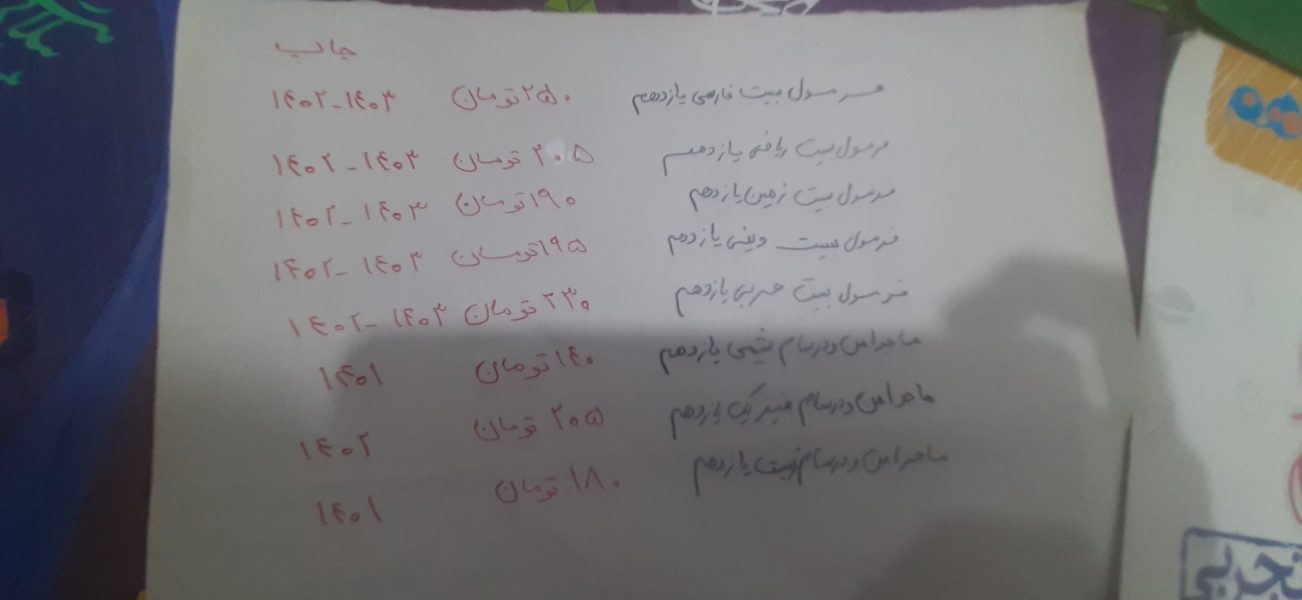 چاپ
فرمول بیست فارسی یازدهم ۲۵۰ تومان ۱۴۰۲-۱۴۰۳
فرمول بیست ریاضی یازدهم ۲۰۵ تومان ۱۴۰۲-۱۴۰۳
فرمول بیست زمین یازدهم ۱۹۰ تومان ۱۴۰۲-۱۴۰۳
فرمول بیست دینی یازدهم ۱۹۵ تومان ۱۴۰۲-۱۴۰۳
فرمول بیست عربی یازدهم ۲۳۰ تومان ۱۴۰۲-۱۴۰۳
ماجرامن و درسام شیمی یازدهم ۱۴۰ تومان ۱۴۰۱
ماجرامن و درسام فیزیک یازدهم ۲۰۵ تومان ۱۴۰۲
ماجرامن و درسام زیست یازدهم ۱۸۰ تومان ۱۴۰۱
تجربی